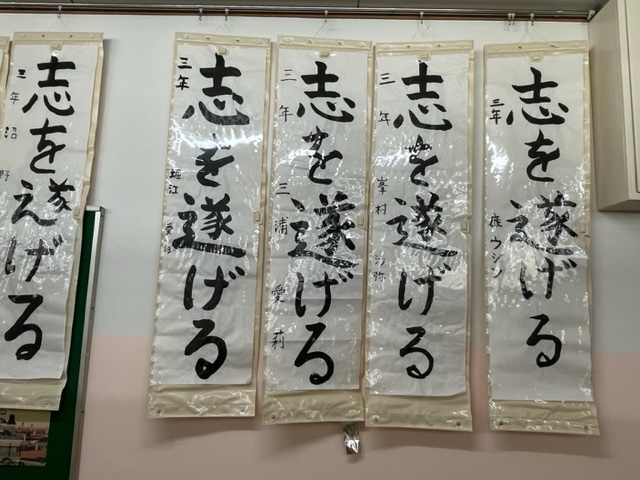 志を遂げる
三年 ウジン
志を遂げる
三年 峯村 沙弥
志を遂げる
三年 三浦 愛莉
志を遂げる
三年 堀江
志を遂げる
三年 沼野